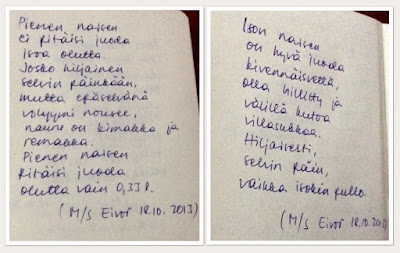 Pienen naisen
ei pitäisi juoda
isoa olutta.
Josko hiljainen
selvin päinkään,
mutta epäselvänä
volyymi nousee,
nauru on kimakka ja
remakka.
Pienen naisen
pitäisi juoda
olutta vain 0,33 l.
(M/S Eivor 18.10.2013)
Ison naisen
on hyvä juoda
kivennäisvettä,
olla hillitty ja
välillä kutoa
villasukkaa.
Hiljaisesti,
selvin päin,
vaikka isokin pullo
(M/S Eivor 18.10.2013)